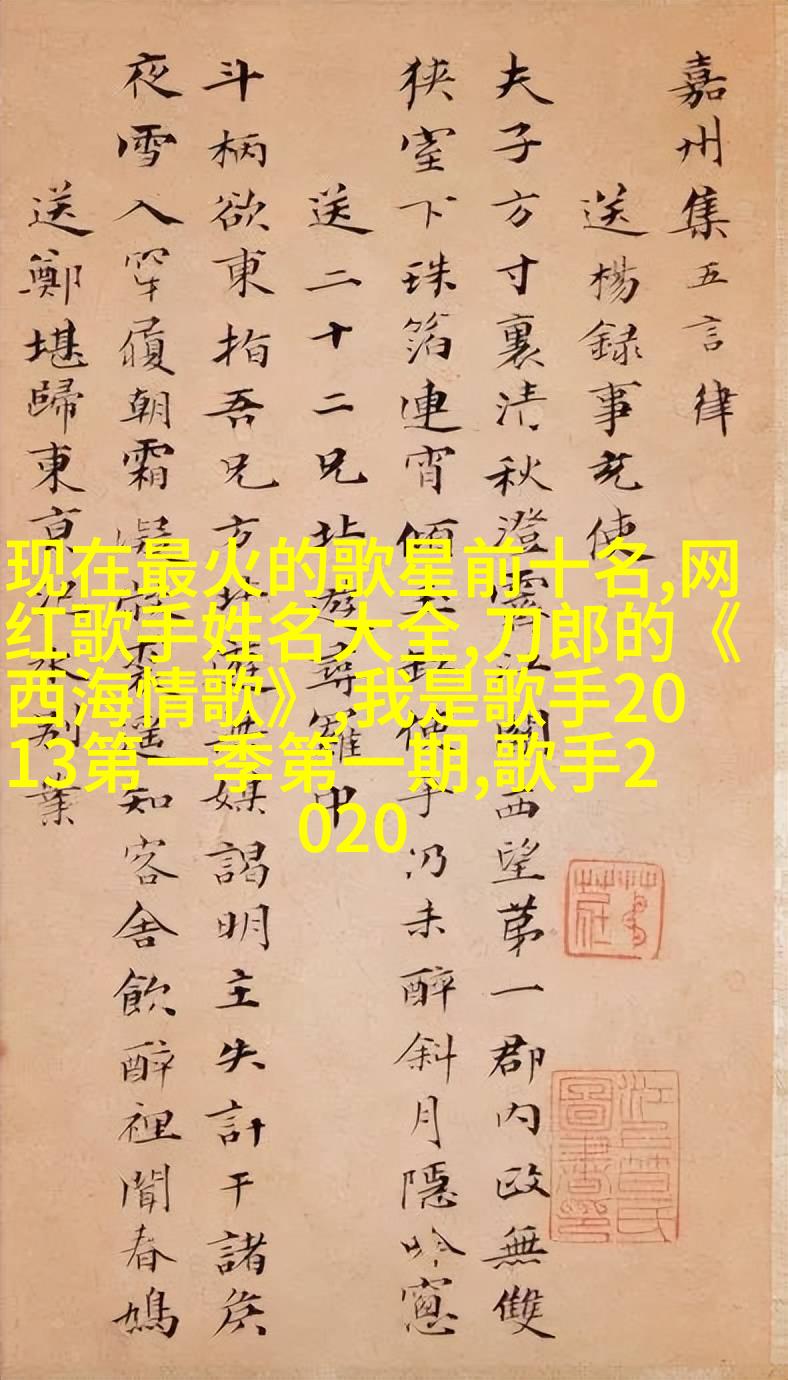 嘉州集五言律
送楊録事充使
夫子方寸裏清秋澄霽江關西望第一郡內政無雙
狹室下珠箔連宵傾玉缸使乎仍未醉斜月隱吟窻
送二十二兄北遊尋羅中
斗柄欲東指吾兄方北遊無媒謁明主失計干諸侯
夜雪入穿履朝霜凝裘遙知客舍飲醉裡聞春鳩
送鄭堪歸東京汜水別業
现在最火的歌星前十名,网
红歌手姓名大全,刀郎的《
西海情歌》,我是歌手20
13第一季第一期,歌手2
020